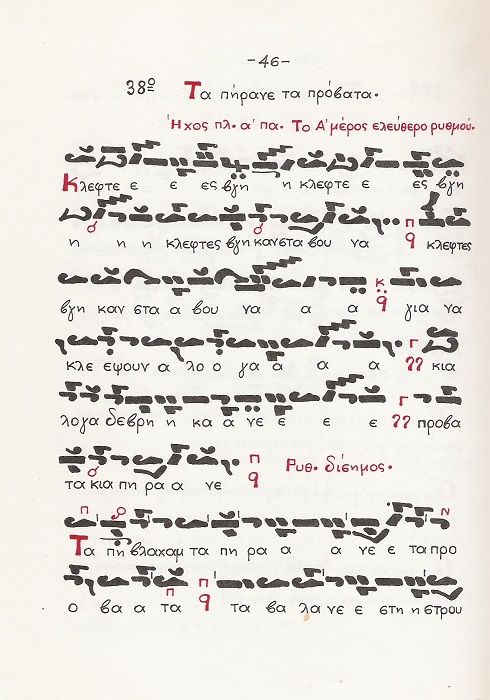 -46-
38º Τα πήρανε τα πρόβατα.
Ήχος πλ. α' πα. Το Α' μέρος ελεύθερο ρυθμού.
Κλεφτε ε ε ες βγη η κλεφτε ε ες βγη
η η η κλεφτες βγη κανστα βου να κλεφτες
βγη καν στα α βου να α α για να
κλε εψουν α λο ο γα α α α κια
λογα δεβρη η κα α νε ε ε ε προβα
τα κια πη ρα α νε Ρυθ. δίσημος.
Τα πη βλαχαμ τα πη ρα α α νε ε τα προ
ο βα α τα τα βα λα νε ε στη η στρου